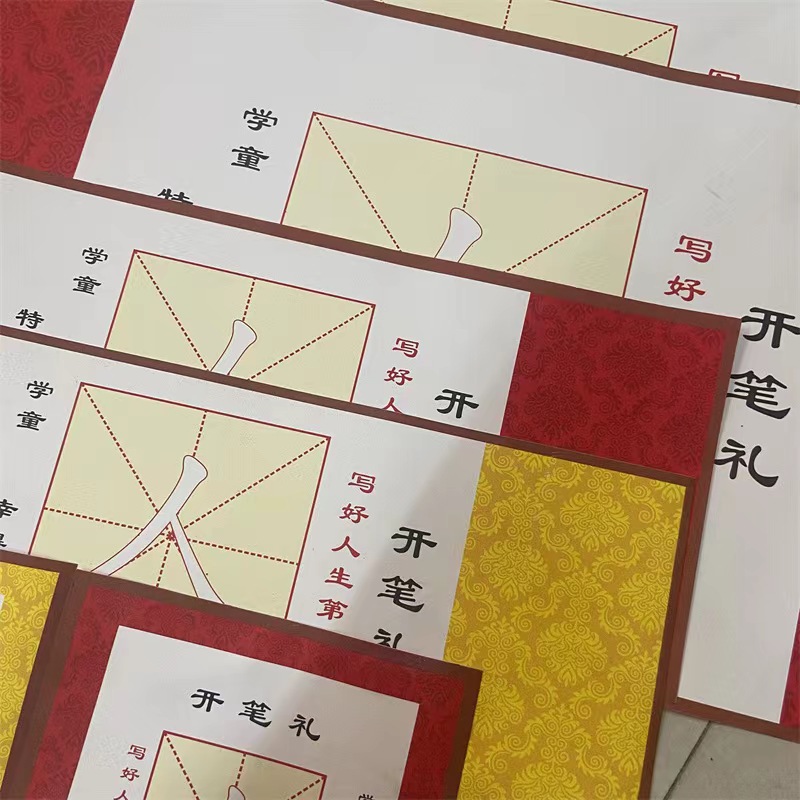 开笔礼
写好
学童
特
开
写好人
学童
特
开笔礼
写好人生第
人
学童
开笔礼
写好人